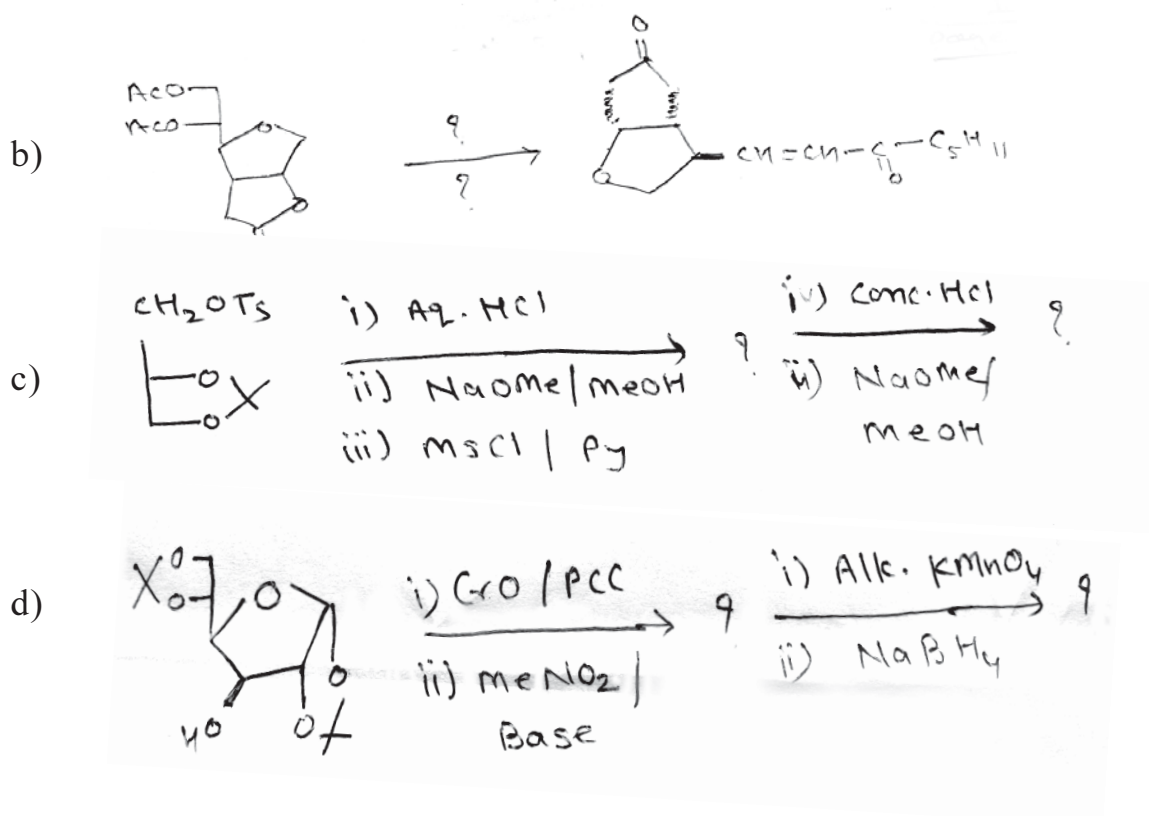 b)
AcO
AcO
O
O
?
?
O
O
CH=CH-C-C5H11
O
c)
CH2OTS
O
O
i) Aq. HCl
ii) NaOMe/MeOH
iii) MsCl | Py
?
iv) Conc. HCl
ii) NaOMe/
MeOH
?
d)
O
O
O
HO
O
O
i) CrO / PCC
ii) MeNO2 /
Base
?
i) Alk. KMnO4
ii) NaBH4
?